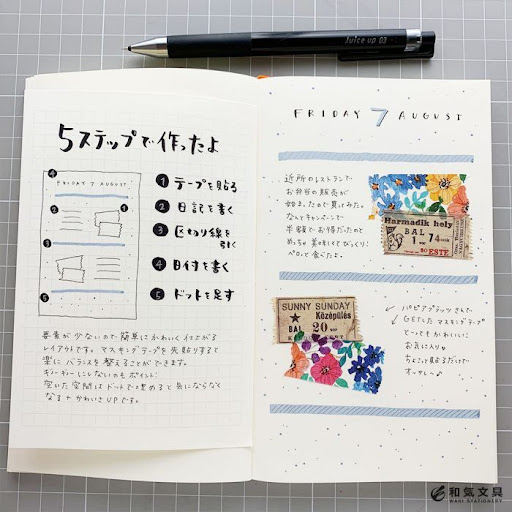 Juice up 03
5ステップで作ったよ
④
FRIDAY 7 AUGUST
②
①
③
⑤
①テープを貼る
②日記を書く
③区切り線を
引く
④日付を書く
⑤ドットを足す
要素が少ないので簡単にかわいく仕上がる
レイアウトです。マスキングテープを先貼りすると
楽にバランスを整えることができます。
キーキーにしないのもポイント!
空いた空間はドットで埋めると気にならなく
なる+かわいさUPです。
FRIDAY 7 AUGUST
近所のレストランで
お弁当の販売が
始まったので買ってみた。
なんとキャンペーンで
半額でお得だったのと
めっちゃ美味しくてびっくり!
ペロッと食べたよ。
Harmadik hely
BAL
1 74
50 ESTE
SUNNY SUNDAY
Középülés
BAL 20
パピアプラッツさんで
GETしたマスキングテープ
とってもかわいい!
お気に入り
ちょこっと貼るだけで
オッサレ〜♪
和気文具
WAKI STATIONERY